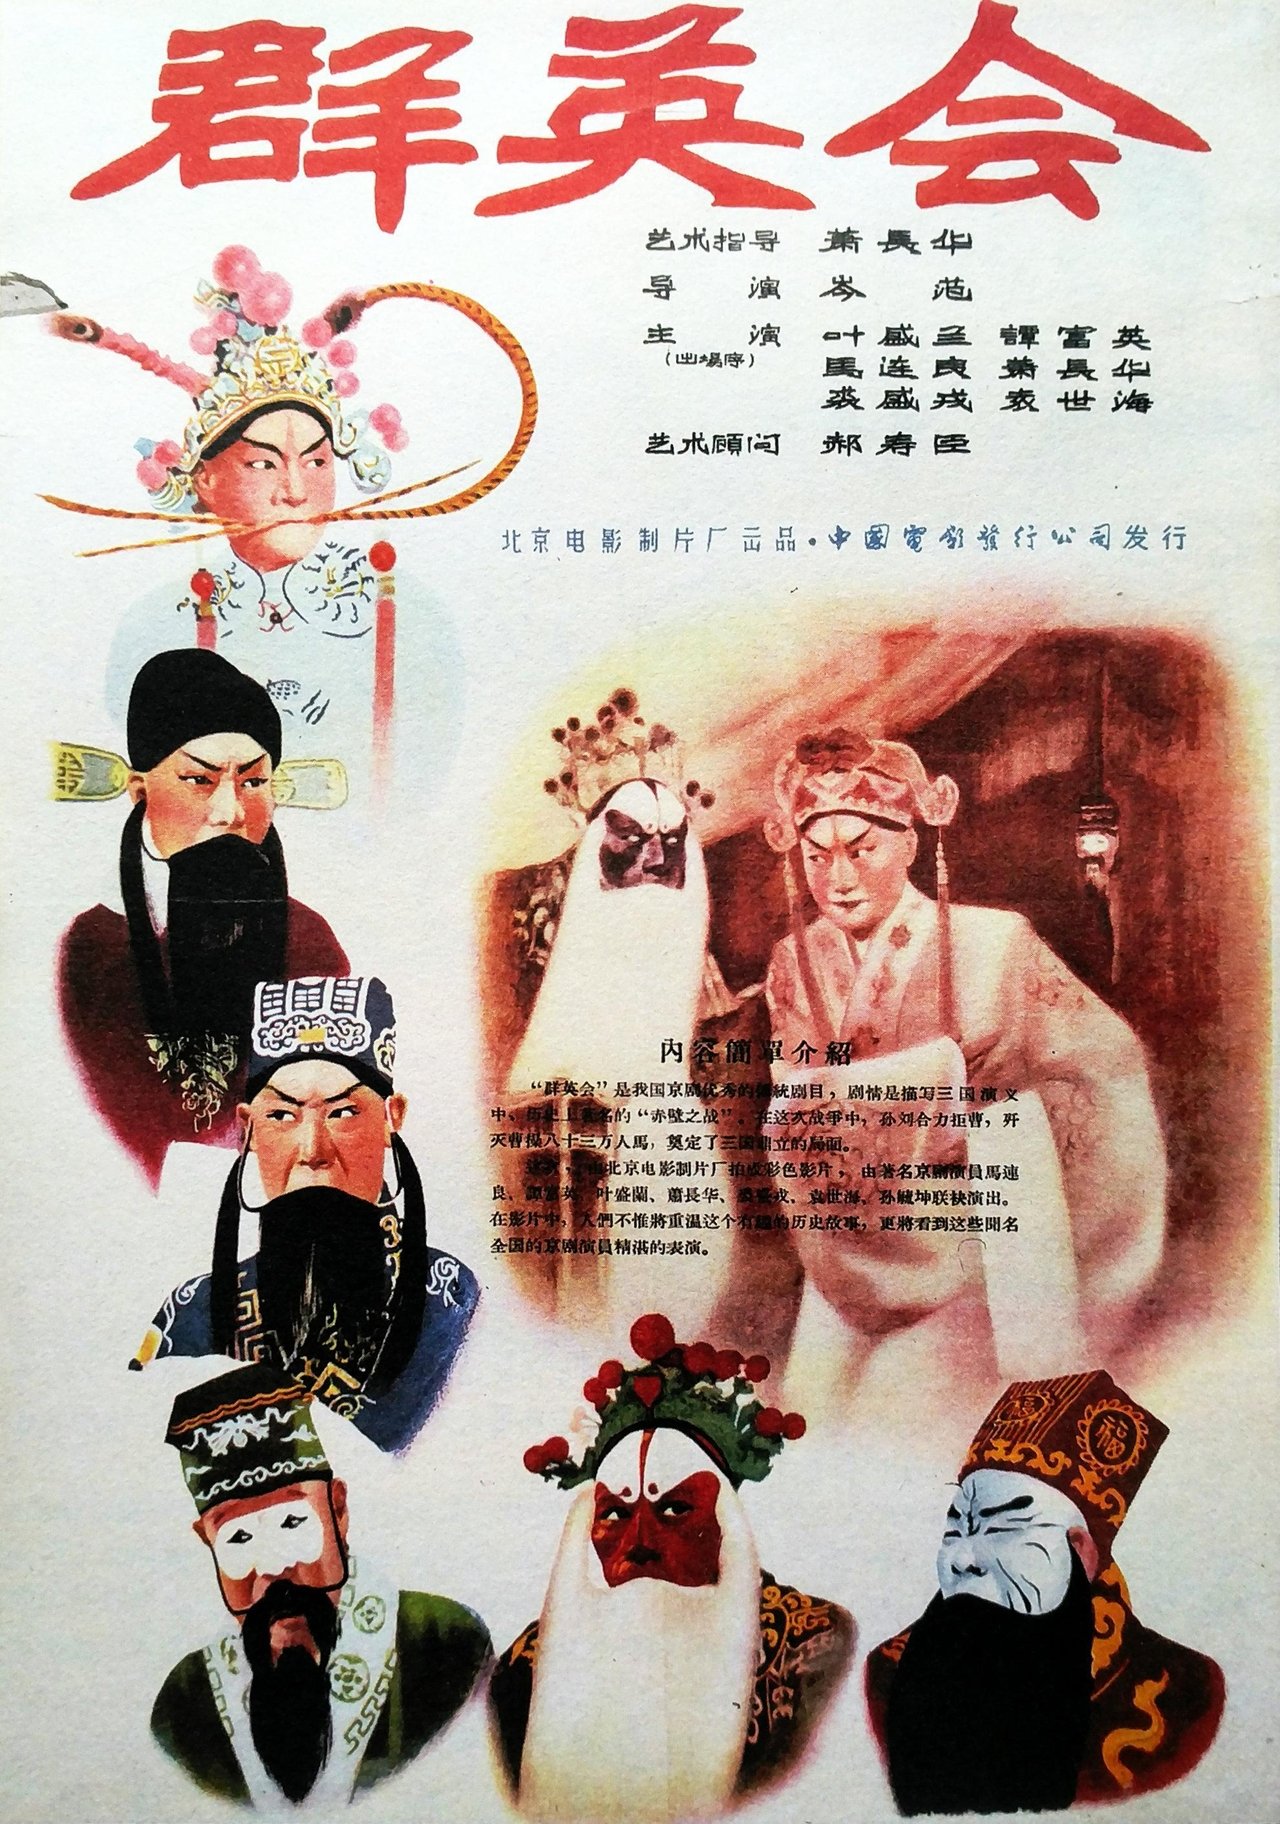 群英会
艺术指导 萧長华
导演 岑范
主演 叶盛兰 譚富英
(出場序) 馬连良 萧長华
裘盛戎 袁世海
艺术顧问 郝寿臣
北京电影制片厂出品·中國電影發行公司发行
内容簡單介紹
“群英会”是我国京剧优秀的傳統剧目，剧情是描写三国演义
中、历史上著名的“赤壁之战”。在这次战爭中，孙刘合力拒曹，歼
灭曹操八十三万人馬，奠定了三国鼎立的局面。
这次，由北京电影制片厂拍成彩色影片，由著名京剧演員馬連
良、譚富英、叶盛蘭、蕭長华、裘盛戎、袁世海、孙毓坤联袂演出。
在影片中，人們不惟將重温这个有趣的历史故事，更將看到这些聞名
全国的京剧演員精湛的表演。
福
福